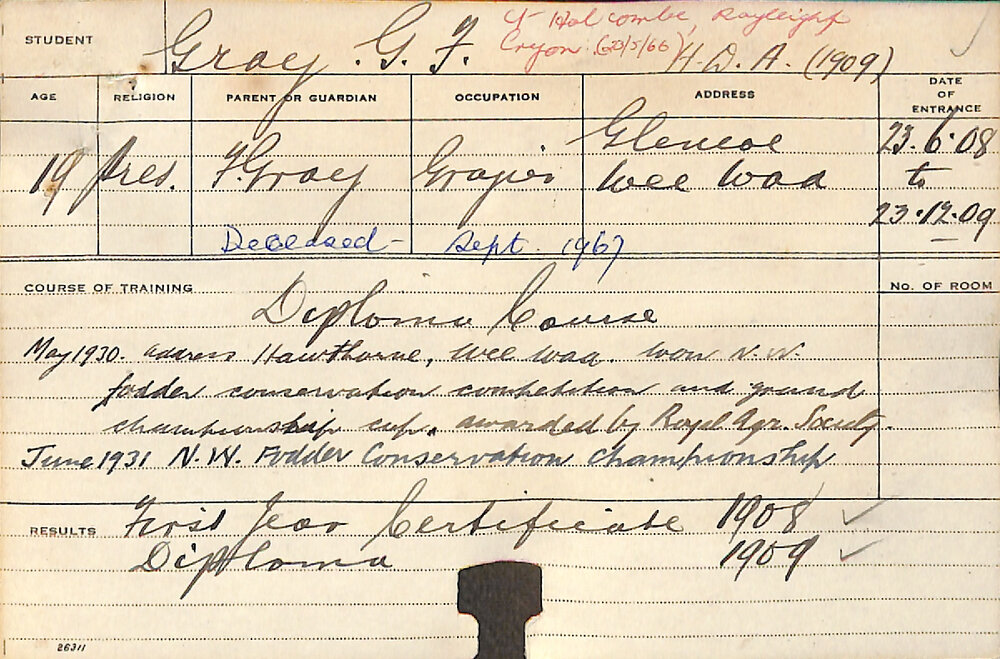 STUDENT Gray. G. F. H.D.A. (1909)
Holcombe, Rayleigh
Cryon. (20/5/66)
AGE RELIGION PARENT OR GUARDIAN OCCUPATION ADDRESS DATE OF ENTRANCE
19 Pres. F. Gray Grazier Glencoe 23.6.08
Wee Waa to
23.12.09
Deceased - Sept. 1967
COURSE OF TRAINING No. OF ROOM
Diploma Course
May 1930. address Hawthorne, Wee Waa. Won N.W.
fodder conservation competition and grand
championship cup, awarded by Royal Agr. Society.
June 1931 N.W. Fodder Conservation Championship
RESULTS First Year Certificate 1908 ✓
Diploma 1909 ✓
26311